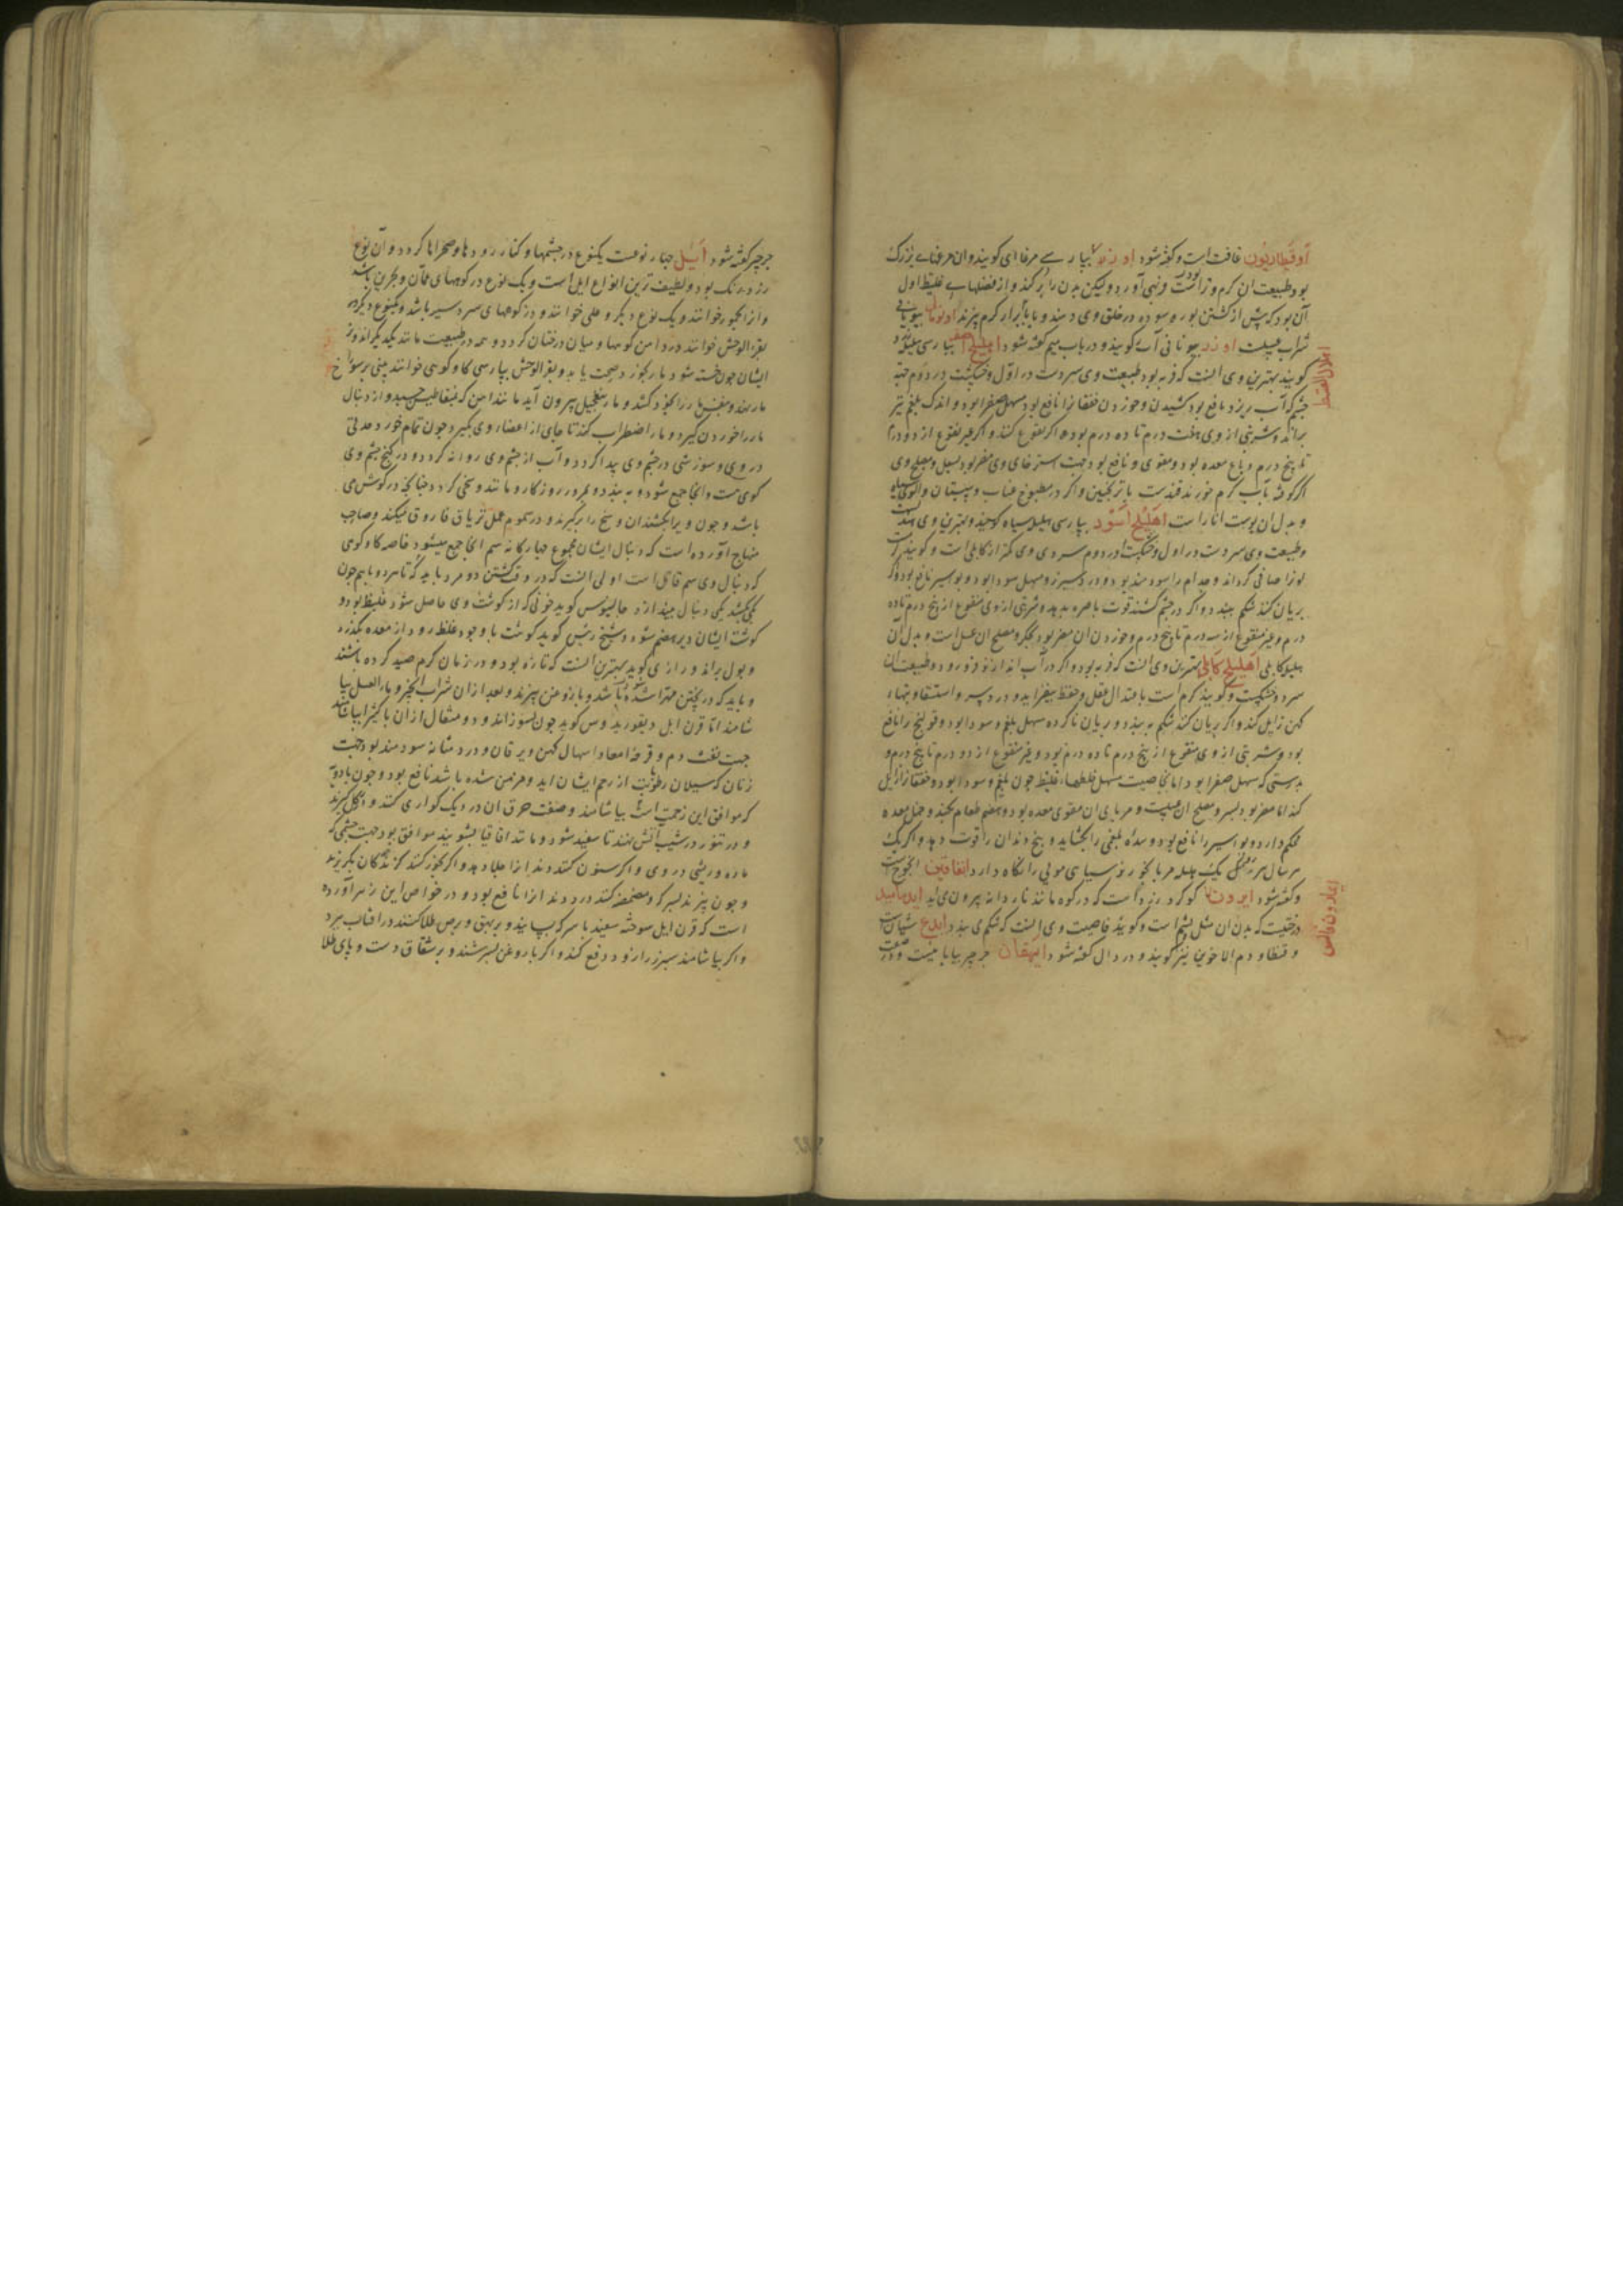 اوفیطاریون غافت است و کفته شود اوز بپارسی مرغابی کویند و ان مرغابی بزرک
بود طبیعت ان کرم و تر است و لیکن بدن را پر کند و از فضلهاء غلیظ اول
آن بود که پیش از کشتن بوره سوده در حلق وی دمند و با ابزار کرم پزند اونومالی بیونانی
شراب عسلیست اوزد بیونانی آب کویند و در باب میم کفته شود اهلیلج اصفر بپارسی هلیله زرد
کویند بهترین وی انست که فربه بود طبیعت وی سردست در اول و خشکست در دوم جهت
چشم که آب ریزد نافع بود کشیدن و خوردن خفقانرا نافع بود مسهل صفرا بود و اندک بلغم نیز
براند و شربتی از وی هفت درم تا ده درم بود اکر نقوع کنند و اکر غیر نقوع از دو درم
تا پنج درم و دباغ معده بود و مقوی و نافع بود جهت استرخای وی مضر بود بسفل و مصلح وی
اکر کوفته بآب کرم خورند قندست یا ترنجبین و اکر در مطبوخ عناب و سپستان و الوی سیاه
و بدل ان پوست انار است اهلیلج اسود بپارسی هلیله سیاه کویند و بهترین وی هندیست
و طبیعت وی سردست در اول و خشکست در دوم سردی وی کمتر از کابلی است و کویند کرمست
لون را صافی کرداند و جذام را سودمند بود و درد سپرز و مسهل سودا بود و بواسیر نافع بود و اکر
بریان کنند شکم ببندد و اکر در چشم کشند قوت باصره بدهد و شربتی از وی منقوع از پنج درم تا ده
درم و غیر منقوع از سه درم تا پنج درم و خوردن ان مضر بود بجکر و مصلح ان عسل است و بدل آن
هلیله کابلی اهلیلج کابلی بهترین وی انست که فربه بود و اکر در آب اندازند فرو رود و طبیعت ان
سرد و خشکست و کویند کرم است باعتدال عقل و حفظ بیفزاید و درد سر و استسقا و تبهاء
کهن زایل کند و اکر بریان کنند شکم ببندد و بریان ناکرده مسهل بلغم و سودا بود و قولنج را نافع
بود و شربتی از وی منقوع از پنج درم تا ده درم بود و غیر منقوع از دو درم تا پنج درم و
بدرستی که مسهل صفرا بود اما بخاصیت مسهل خلطهاء غلیظ چون بلغم و سودا بود و خفقان زایل
کند اما مضر بود بسر و مصلح ان عسلیست و مربای ان مقوی معده بود و هضم طعام بکند و خمل معده
محکم دارد و بواسیر را نافع بود و سده بلغمی را بکشاید و بیخ دندان را قوت دهد و اکر یک
سال هر یک هلیله مربا بخورند سیاهی موی را نکاه دارد
و کفته شود ایرون کوکرد زرد است که در کوه مانند
درختیست که بدن ان مثل پشم است و کویند خاصیت وی انست که شکم می بندد ایدع شیان است
و قنطار و دم الاخوین نیز کویند و در دال کفته شود ایهقان جرجیر بیابانیست و در صفت
جرجیر کفته شود ایل چهار نوعست یکنوع در چشمها و کنار رودها و صحراها کردد و آن نوع
زرد رنک بود و لطیف ترین انواع ایل است و یک نوع در کوههای عمان و بحرین باشد
و از انجبور خوانند و یک نوع دیکر وعلی خوانند و در کوههای سردسیر باشد و یکنوع دیکر که
بقر الوحش خوانند در دامن کوهها و میان درختان کردد و همه در طبیعت مانند یکدیکراند و
ایشان چون خسته شود مار بخورد صحت یابد و بقر الوحش بپارسی کاو کوهی خوانند بینی بر سوراخ
مار نهد و بنفس مار را بخود کشد و مار بتعجیل بیرون آید مانند اهن که بمقناطیس چسبد و از دنبال
مار را خوردن کیرد و مار اضطراب کند تا جای از اعضاء وی بکیرد چون تمام خورد مدتی
در وی و سوزشی در چشم وی پیدا کردد و آب از چشم وی روانه کردد و در کنج چشم وی
کوی هست و انجا جمع شود و ببندد و بمرور روزکار و مانند وسخی کردد چنانچه در کوش می
باشد و چون ویرا بکشند ان وسخ را برکیرند و در سموم عمل تریاق فاروق میکند و صاحب
منهاج آورده است که دنبال ایشان مجموع چهارکانه سم انجا جمع میشود خاصه کاو کوهی
که دنبال وی سم قاتل است اولی انست که در وقت کشتن دو مرد باید که تا هر دو باهم چون
یکی کشد یکی دنبال بیندازد جالینوس کوید خونی که از کوشت وی حاصل شود غلیظ بود و
کوشت ایشان دیر هضم شود و شیخ رئیس کوید کوشت با وجود غلظ زود از معده بکذرد
و بول براند و رازی کوید بهترین انست که تازه بود و در زمان کرم صید کرده باشند
و باید که در پختن مهرا شده باشد و با روغن پزند و بعد ازان شراب انجیر و ماء العسل بیا
شامند اما قرن ایل دیسقوریدوس کوید چون بسوزانند و دو مثقال ازان با کثیرا بیاشامند
جهت نفث دم و قرحه امعا و اسهال کهن و یرقان و درد مثانه سودمند بود جهت
زنان که سیلان رطوبت از رحم ایشان اید و مزمن شده باشد نافع بود و چون با ادویه
که موافق این زحمت است بیاشامند و صفت حرق ان در دیک کواری کنند و بکل کیرند
و در تنور در شیب آتش نهند تا سفید شود و مانند اقاقیا بشویند موافق بود جهت چشمی که
ماده و ریشی در وی و اکر سنون کنند دندانرا جلا دهد و اکر بخور کنند کزندکان بکریزند
و چون پزند بسرکه و مضمضه کنند درد دندانرا نافع بود و در خواص این زهر آورده
است که قرن ایل سوخته سفید با سرکه بسایند و بر بهق و برص طلا کنند در افتاب ببرد
و اکر بیاشامند سپرز را زود دفع کند و اکر با روغن بسرشند و بر شقاق دست و پای طلا